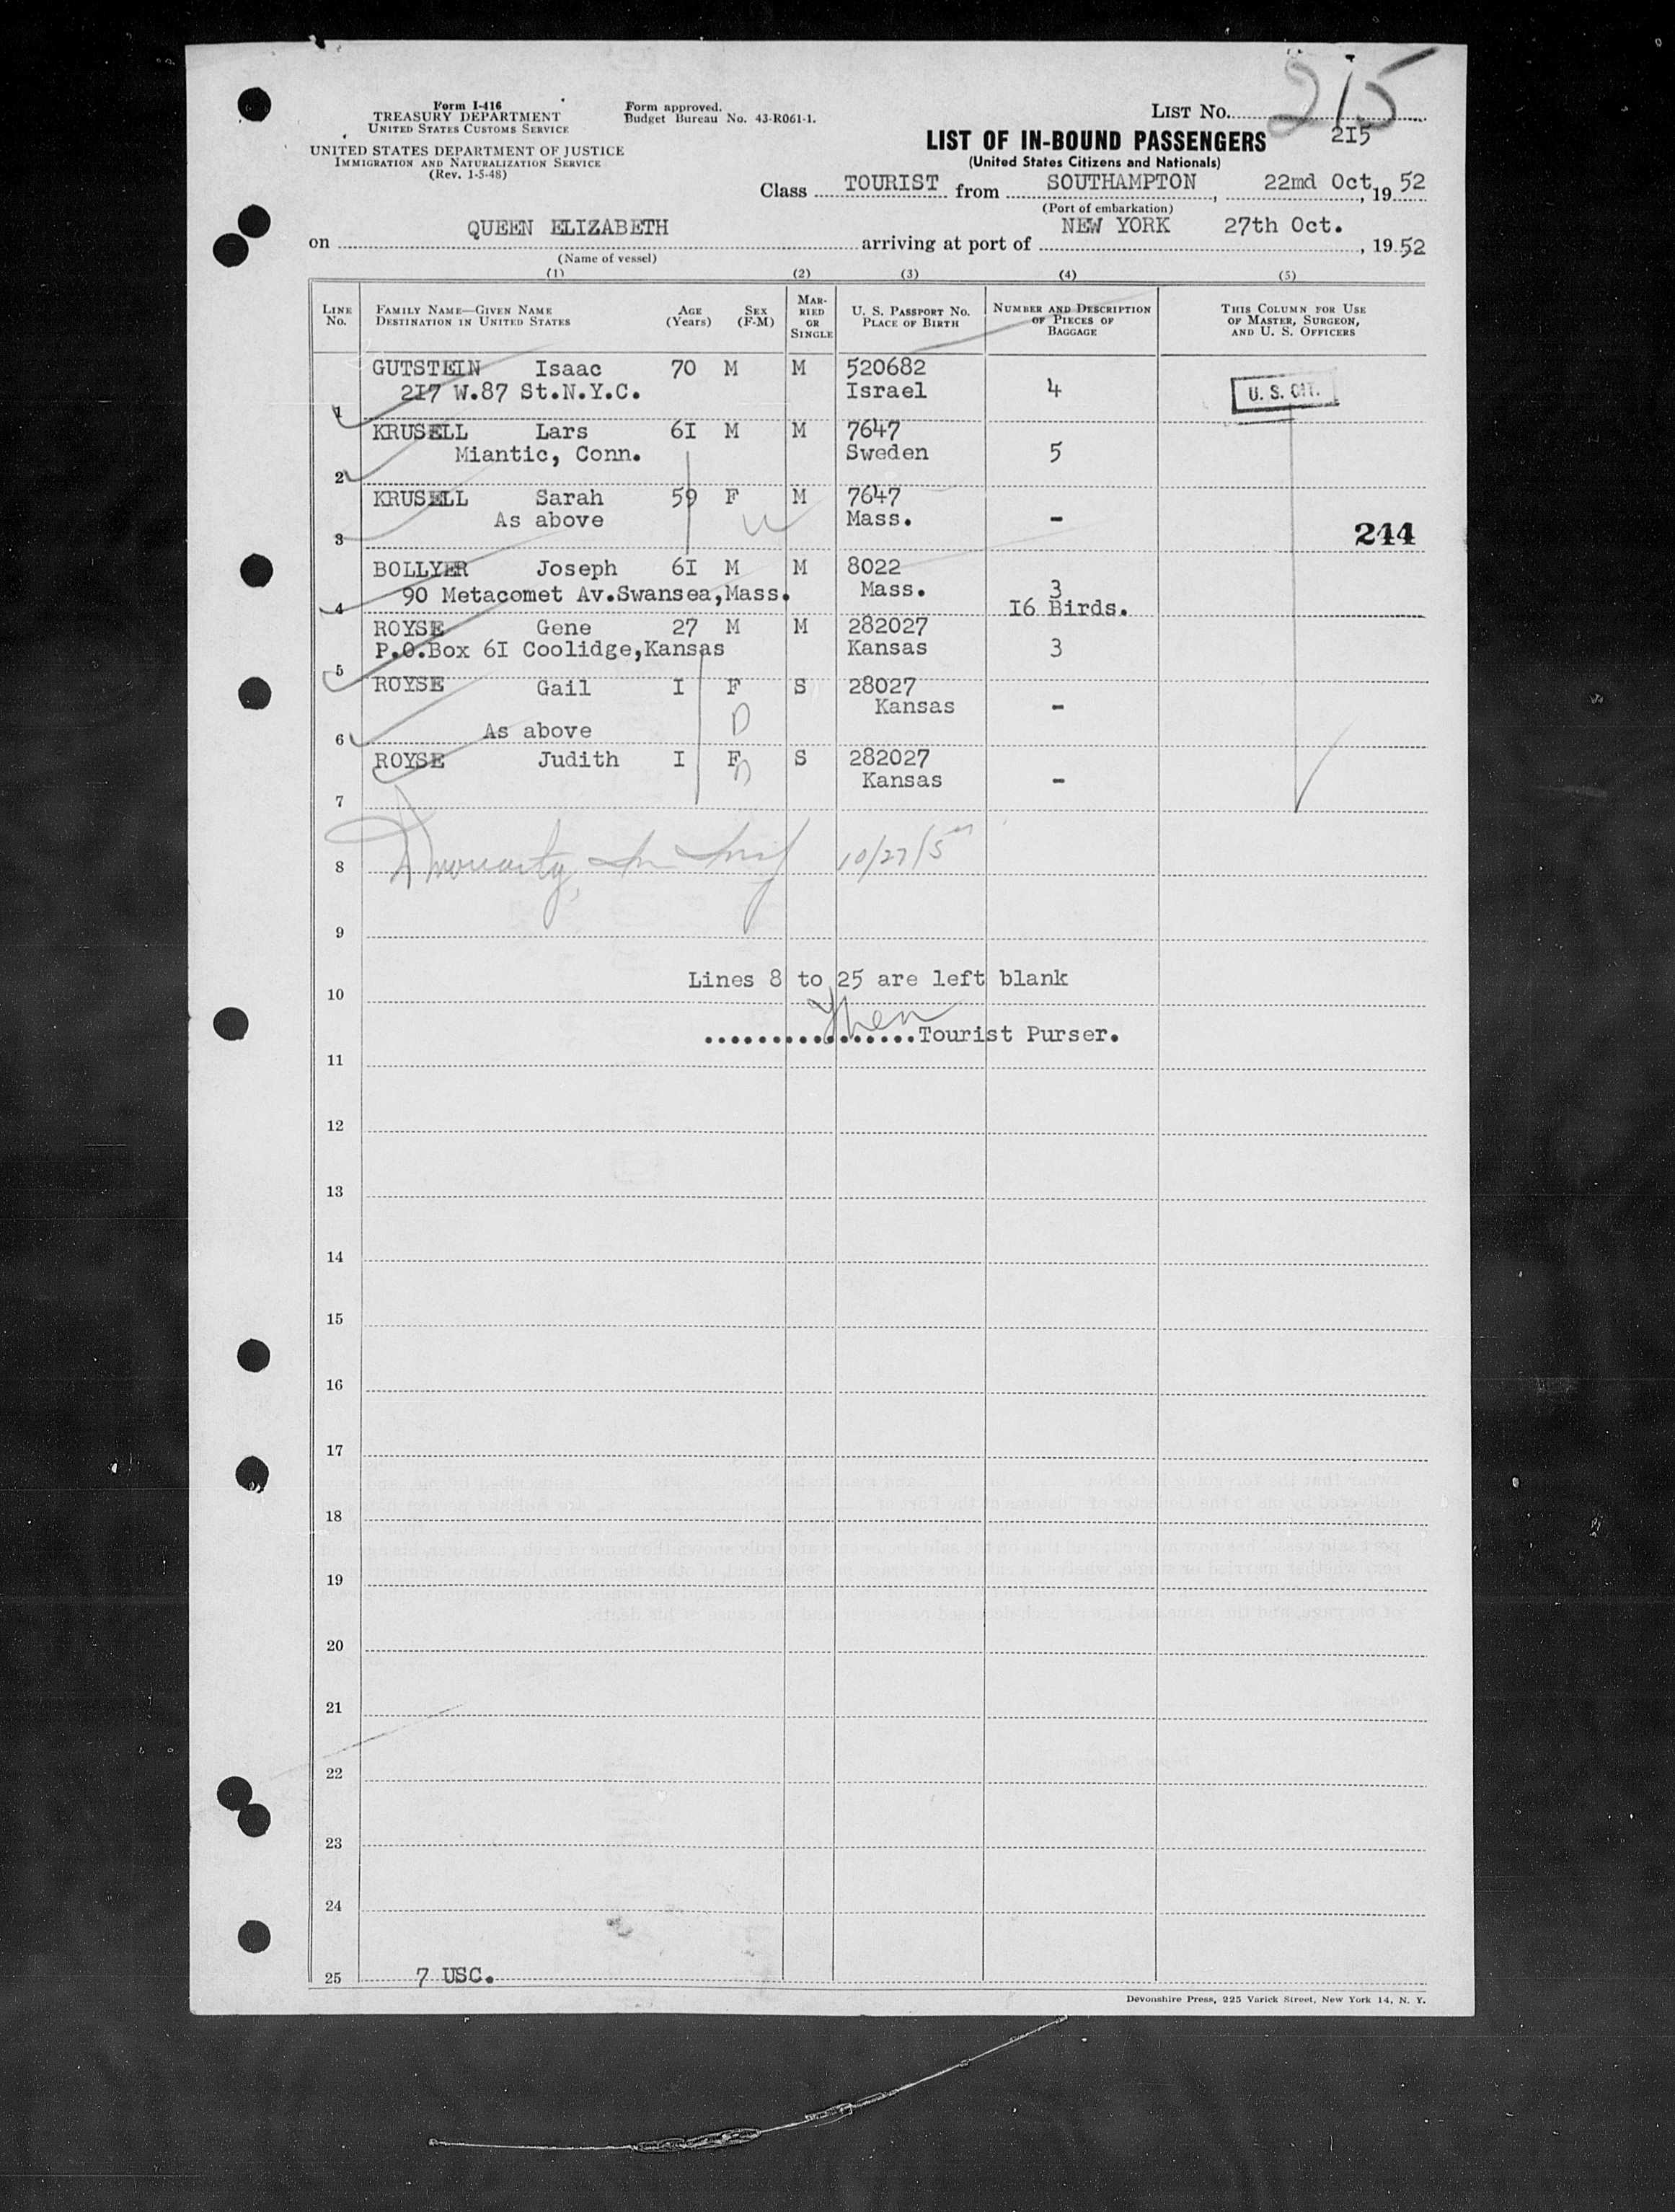 Form I-416
TREASURY DEPARTMENT
UNITED STATES CUSTOMS SERVICE
UNITED STATES DEPARTMENT OF JUSTICE
IMMIGRATION AND NATURALIZATION SERVICE
(Rev. 1-5-48)
Form approved.
Budget Bureau No. 43-R061-1.
LIST No. 215
215
LIST OF IN-BOUND PASSENGERS
(United States Citizens and Nationals)
Class TOURIST from SOUTHAMPTON, 22md Oct, 19 52
(Port of embarkation)
on QUEEN ELIZABETH arriving at port of NEW YORK 27th Oct., 19 52
(Name of vessel)
(1) (2) (3) (4) (5)
LINE No. FAMILY NAME—GIVEN NAME DESTINATION IN UNITED STATES AGE (Years) SEX (F-M) MARRIED OR SINGLE U. S. PASSPORT NO. PLACE OF BIRTH NUMBER AND DESCRIPTION OF PIECES OF BAGGAGE THIS COLUMN FOR USE OF MASTER, SURGEON, AND U. S. OFFICERS
GUTSTEIN Isaac 70 M M 520682
217 W.87 St.N.Y.C. Israel 4 U. S. CIT.
1
KRUSELL Lars 6I M M 7647
Miantic, Conn. Sweden 5
2
KRUSELL Sarah 59 F M 7647
As above Mass. -
3 244
BOLLYER Joseph 6I M M 8022
90 Metacomet Av.Swansea,Mass. Mass. 3
4 I6 Birds.
ROYSE Gene 27 M M 282027
P.O.Box 6I Coolidge,Kansas Kansas 3
5
ROYSE Gail I F S 28027
Kansas -
As above D
6
ROYSE Judith I F S 282027
Kansas -
7
8 10/27/5
9
Lines 8 to 25 are left blank
10
Tourist Purser.
11
12
13
14
15
16
17
18
19
20
21
22
23
24
25 7 USC.
Devonshire Press, 225 Varick Street, New York 14, N. Y.